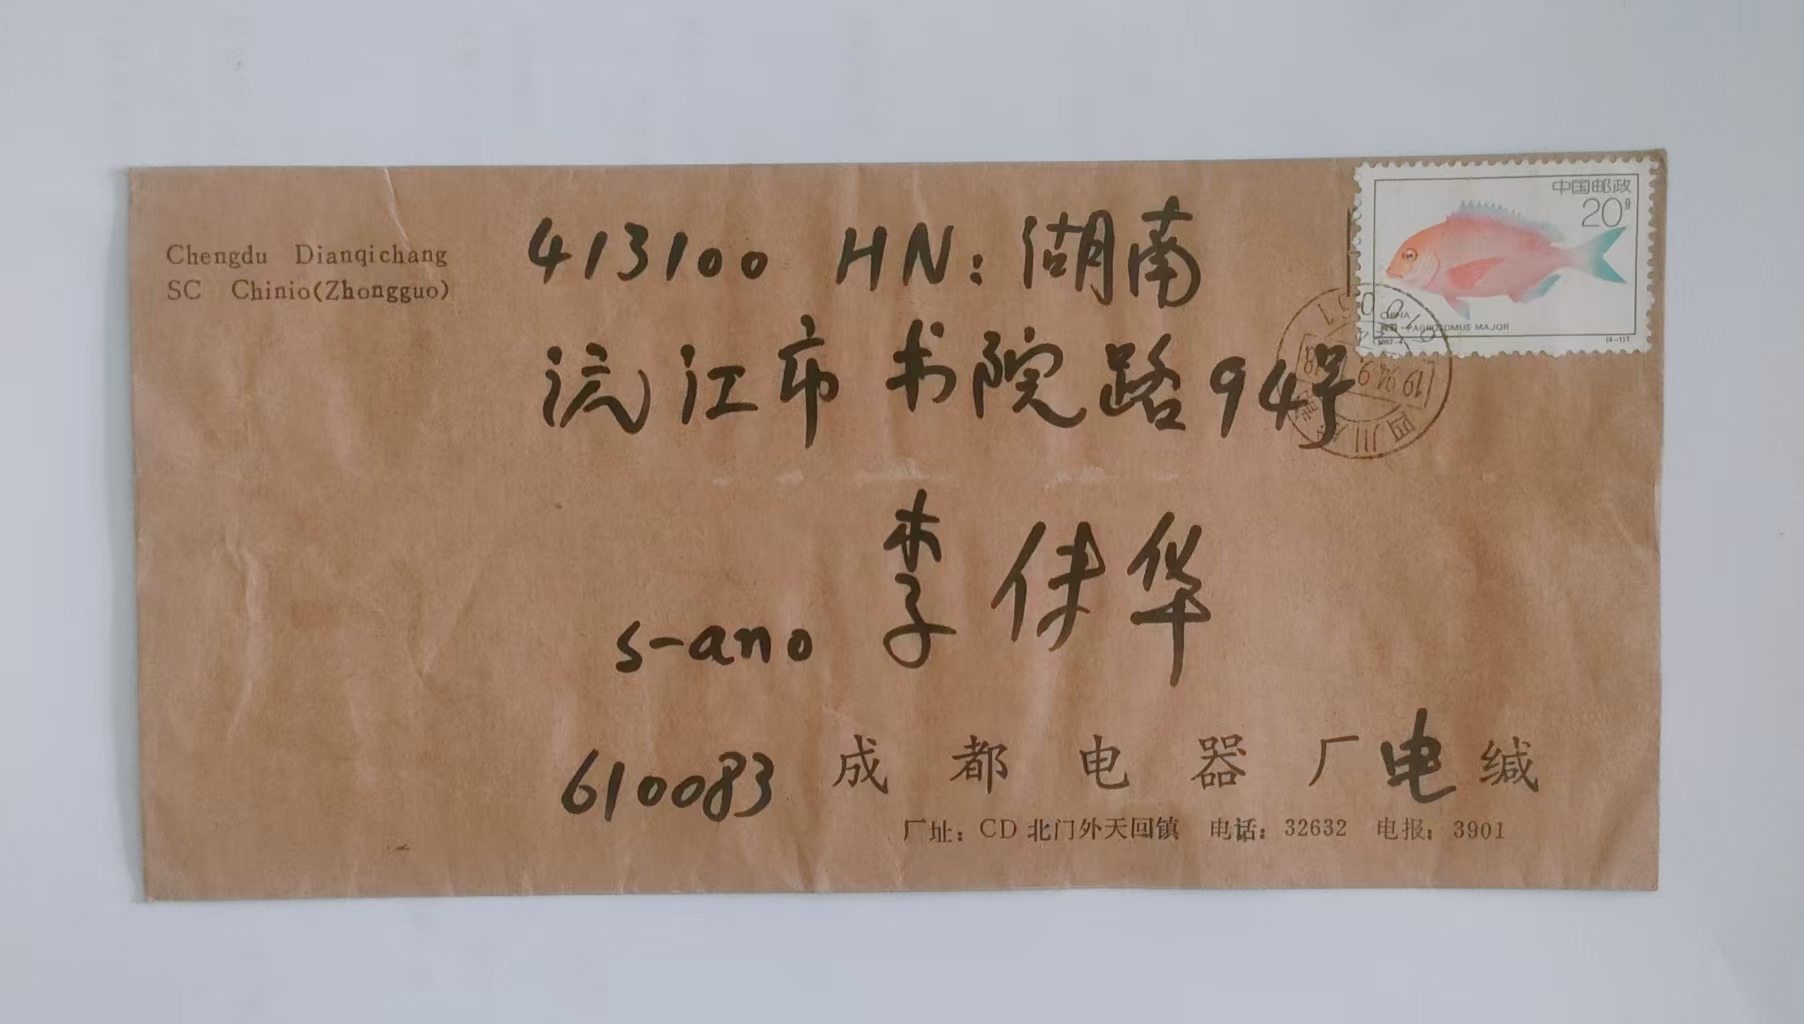 中国邮政
20分
Chengdu Dianqichang
SC Chinio(Zhongguo)
413100 HN: 湖南
CHINA
PAGROSOMUS MAJOR
1992-4
(4-1)T
沅江市书院路94号
四川成都
李伟华
s-ano
610083 成都电器厂电缄
厂址: CD北门外天回镇 电话: 32632 电报: 3901